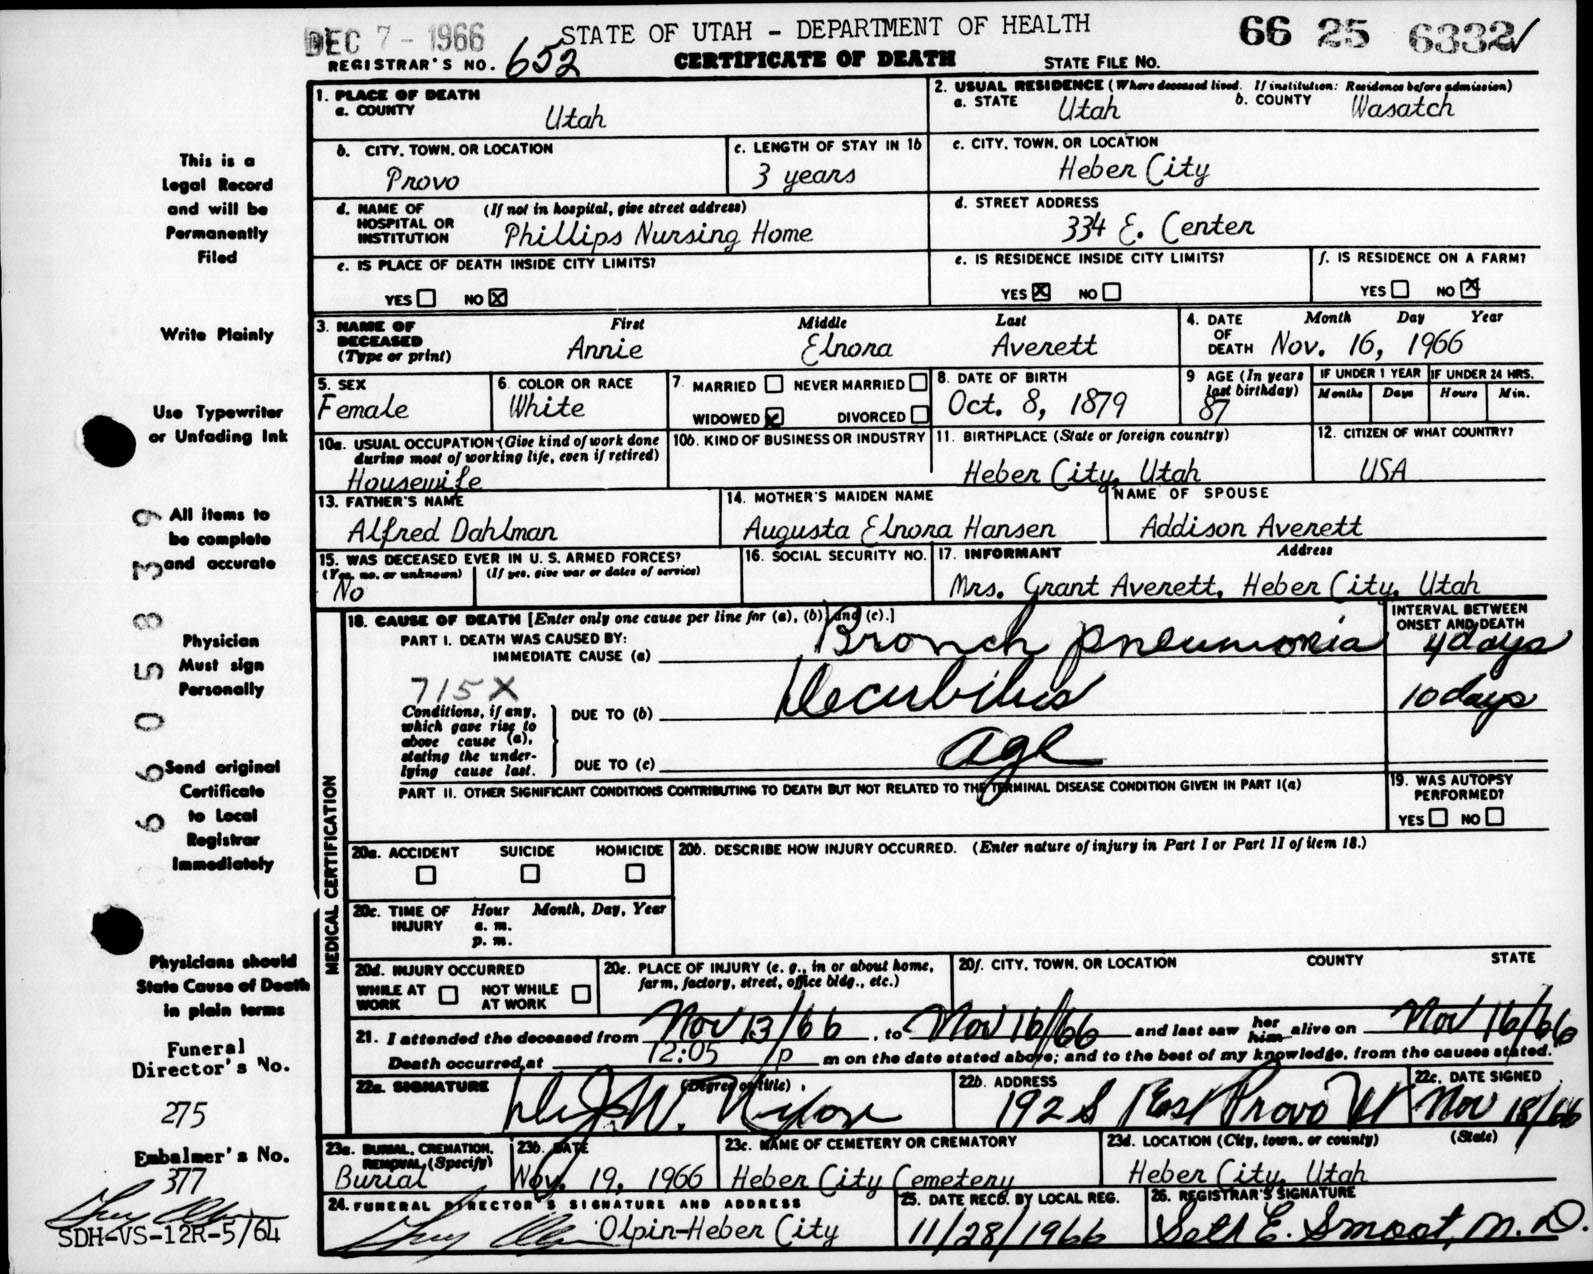 DEC 7 - 1966 STATE OF UTAH - DEPARTMENT OF HEALTH 66 25 6332 ✓
REGISTRAR'S NO. 652 CERTIFICATE OF DEATH STATE FILE NO.
1. PLACE OF DEATH
a. COUNTY Utah
2. USUAL RESIDENCE (Where deceased lived. If institution: Residence before admission)
a. STATE Utah b. COUNTY Wasatch
b. CITY, TOWN, OR LOCATION Provo
c. LENGTH OF STAY IN 1b 3 years
c. CITY, TOWN, OR LOCATION
Heber City
d. NAME OF HOSPITAL OR INSTITUTION (If not in hospital, give street address)
Phillips Nursing Home
d. STREET ADDRESS
334 E. Center
e. IS PLACE OF DEATH INSIDE CITY LIMITS?
YES ☐ NO ☒
e. IS RESIDENCE INSIDE CITY LIMITS?
YES ☒ NO ☐
f. IS RESIDENCE ON A FARM?
YES ☐ NO ☒
3. NAME OF DECEASED (Type or print)
First Middle Last
Annie Elnora Averett
4. DATE OF DEATH Month Day Year
Nov. 16, 1966
5. SEX
Female
6. COLOR OR RACE
White
7. MARRIED ☐ NEVER MARRIED ☐
WIDOWED ☒ DIVORCED ☐
8. DATE OF BIRTH
Oct. 8, 1879
9 AGE (In years last birthday)
87
IF UNDER 1 YEAR IF UNDER 24 HRS.
Months Days Hours Min.
10a. USUAL OCCUPATION (Give kind of work done during most of working life, even if retired)
Housewife
10b. KIND OF BUSINESS OR INDUSTRY
11. BIRTHPLACE (State or foreign country)
Heber City, Utah
12. CITIZEN OF WHAT COUNTRY?
USA
13. FATHER'S NAME
Alfred Dahlman
14. MOTHER'S MAIDEN NAME
Augusta Elnora Hansen
NAME OF SPOUSE
Addison Averett
15. WAS DECEASED EVER IN U. S. ARMED FORCES?
(Yes, no, or unknown) (If yes, give war or dates of service)
No
16. SOCIAL SECURITY NO.
17. INFORMANT Address
Mrs. Grant Averett, Heber City, Utah
MEDICAL CERTIFICATION
18. CAUSE OF DEATH [Enter only one cause per line for (a), (b) and (c).]
INTERVAL BETWEEN ONSET AND DEATH
PART I. DEATH WAS CAUSED BY:
IMMEDIATE CAUSE (a) Bronch pneumonia 4 days
715X
Conditions, if any, which gave rise to above cause (a), stating the underlying cause last.
DUE TO (b) Decubitus 10 days
DUE TO (c) age
PART II. OTHER SIGNIFICANT CONDITIONS CONTRIBUTING TO DEATH BUT NOT RELATED TO THE TERMINAL DISEASE CONDITION GIVEN IN PART I(a)
19. WAS AUTOPSY PERFORMED?
YES ☐ NO ☐
20a. ACCIDENT SUICIDE HOMICIDE
☐ ☐ ☐
20b. DESCRIBE HOW INJURY OCCURRED. (Enter nature of injury in Part I or Part II of item 18.)
20c. TIME OF INJURY Hour Month, Day, Year
a. m.
p. m.
20d. INJURY OCCURRED
WHILE AT WORK ☐ NOT WHILE AT WORK ☐
20e. PLACE OF INJURY (e. g., in or about home, farm, factory, street, office bldg., etc.)
20f. CITY, TOWN, OR LOCATION COUNTY STATE
21. I attended the deceased from Nov 13/66, to Nov 16/66 and last saw her him alive on Nov 16/66
Death occurred at 12:05 p m on the date stated above; and to the best of my knowledge, from the causes stated.
22a. SIGNATURE (Degree or title)
W. Nixon
22b. ADDRESS
192 S East Provo Ut
22c. DATE SIGNED
Nov 18/66
23a. BURIAL, CREMATION, REMOVAL (Specify)
Burial
23b. DATE
Nov. 19, 1966
23c. NAME OF CEMETERY OR CREMATORY
Heber City Cemetery
23d. LOCATION (City, town, or county) (State)
Heber City, Utah
24. FUNERAL DIRECTOR'S SIGNATURE AND ADDRESS
Olpin-Heber City
25. DATE RECD. BY LOCAL REG.
11/28/1966
26. REGISTRAR'S SIGNATURE
Seth E. Smoot, M. D.
This is a
Legal Record
and will be
Permanently
Filed
Write Plainly
Use Typewriter
or Unfading Ink
All items to
be complete
and accurate
Physician
Must sign
Personally
Send original
Certificate
to Local
Registrar
Immediately
Physicians should
State Cause of Death
in plain terms
Funeral
Director's No.
275
Embalmer's No.
377
SDH-VS-12R-5/64